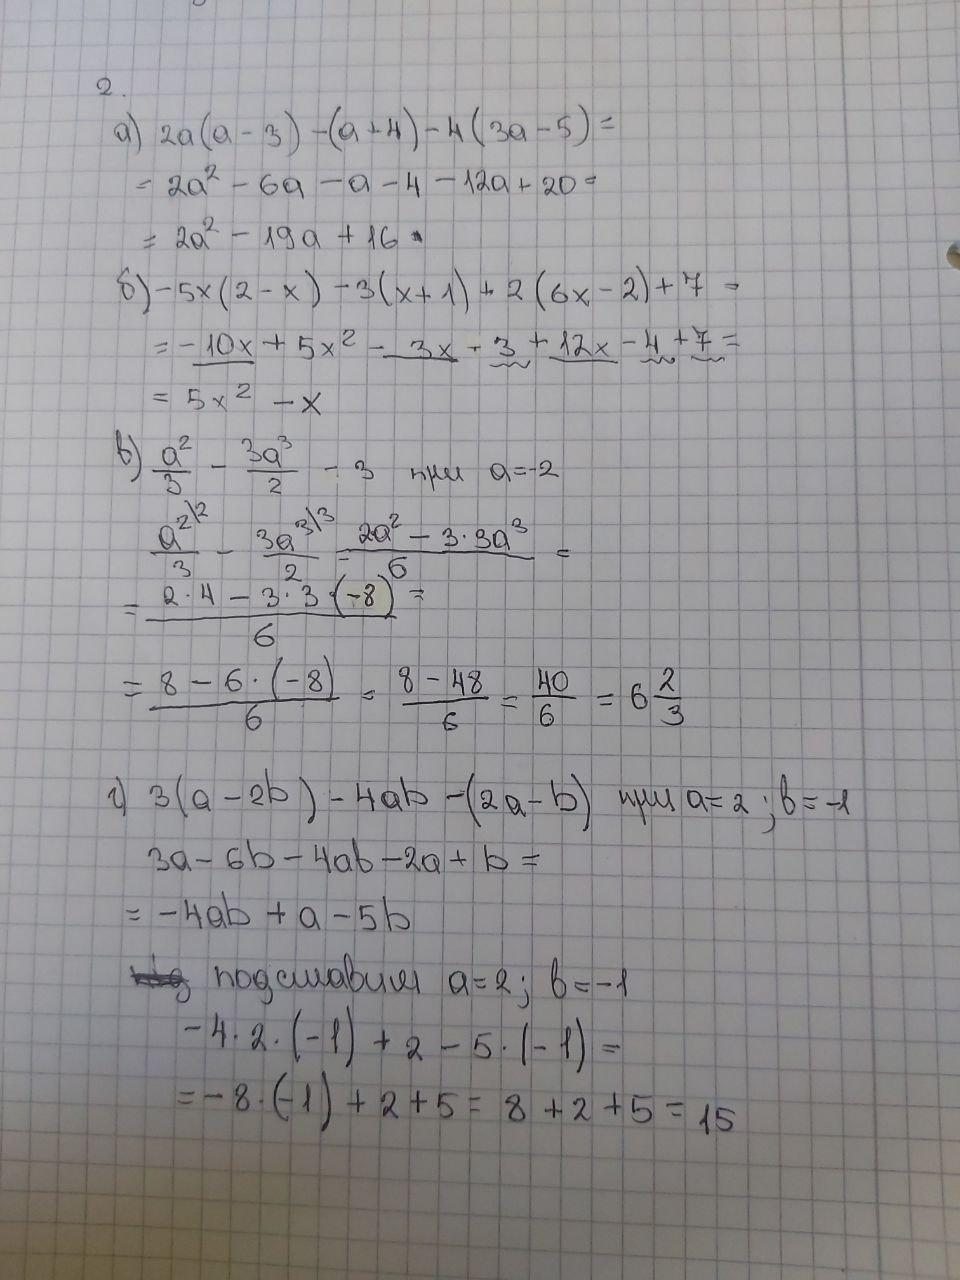 2.
а) 2a(a - 3) - (a + 4) - 4(3a - 5) =
= 2a² - 6a - a - 4 - 12a + 20 =
= 2a² - 19a + 16.
б) -5x(2 - x) - 3(x + 1) + 2(6x - 2) + 7 =
= -10x + 5x² - 3x - 3 + 12x - 4 + 7 =
= 5x² - x
в) a²/3 - 3a³/2 - 3 при a = -2
a²\2/3 - 3a³\3/2 = (2a² - 3·3a³)/6 =
= (2·4 - 3·3·(-8))/6 =
= (8 - 6·(-8))/6 = (8 - 48)/6 = 40/6 = 6 2/3
г) 3(a - 2b) - 4ab - (2a - b) при a = 2; b = -1
3a - 6b - 4ab - 2a + b =
= -4ab + a - 5b
подставим a = 2; b = -1
-4·2·(-1) + 2 - 5·(-1) =
= -8·(-1) + 2 + 5 = 8 + 2 + 5 = 15